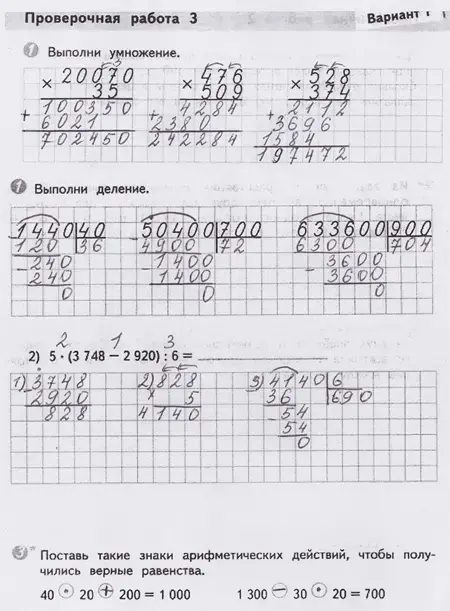 Проверочная работа 3
Вариант 1
1 Выполни умножение.
× 20070 × 476 × 528
35 509 374
+ 100350 + 4284 + 2112
6021 2380 3696
702450 242284 1584
197472
1 Выполни деление.
- 1440 40 - 50400 700 633600 900
120 36 4900 72 6300 704
- 240 - 1400 - 3600
240 1400 3600
0 0 0
2 1 3
2) 5 • (3 748 – 2 920) : 6 =
1) 3748 2) 828 3) 4140 6
2920 × 5 36 690
828 4140 - 54
54
0
3* Поставь такие знаки арифметических действий, чтобы полу-
чились верные равенства.
40 • 20 + 200 = 1 000 1 300 – 30 • 20 = 700